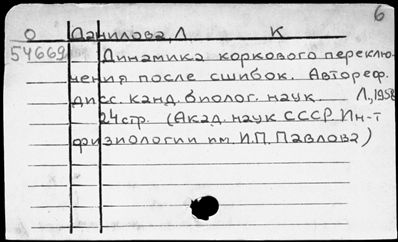 6
О Данилова, Л К
54669 Динамика коркового переклю-
чения после сшибок. Автореф.
дисс. канд. биолог. наук. Л., 1958
24 стр. (Акад. наук СССР. Ин-т
физиологии им. И.П. Павлова)